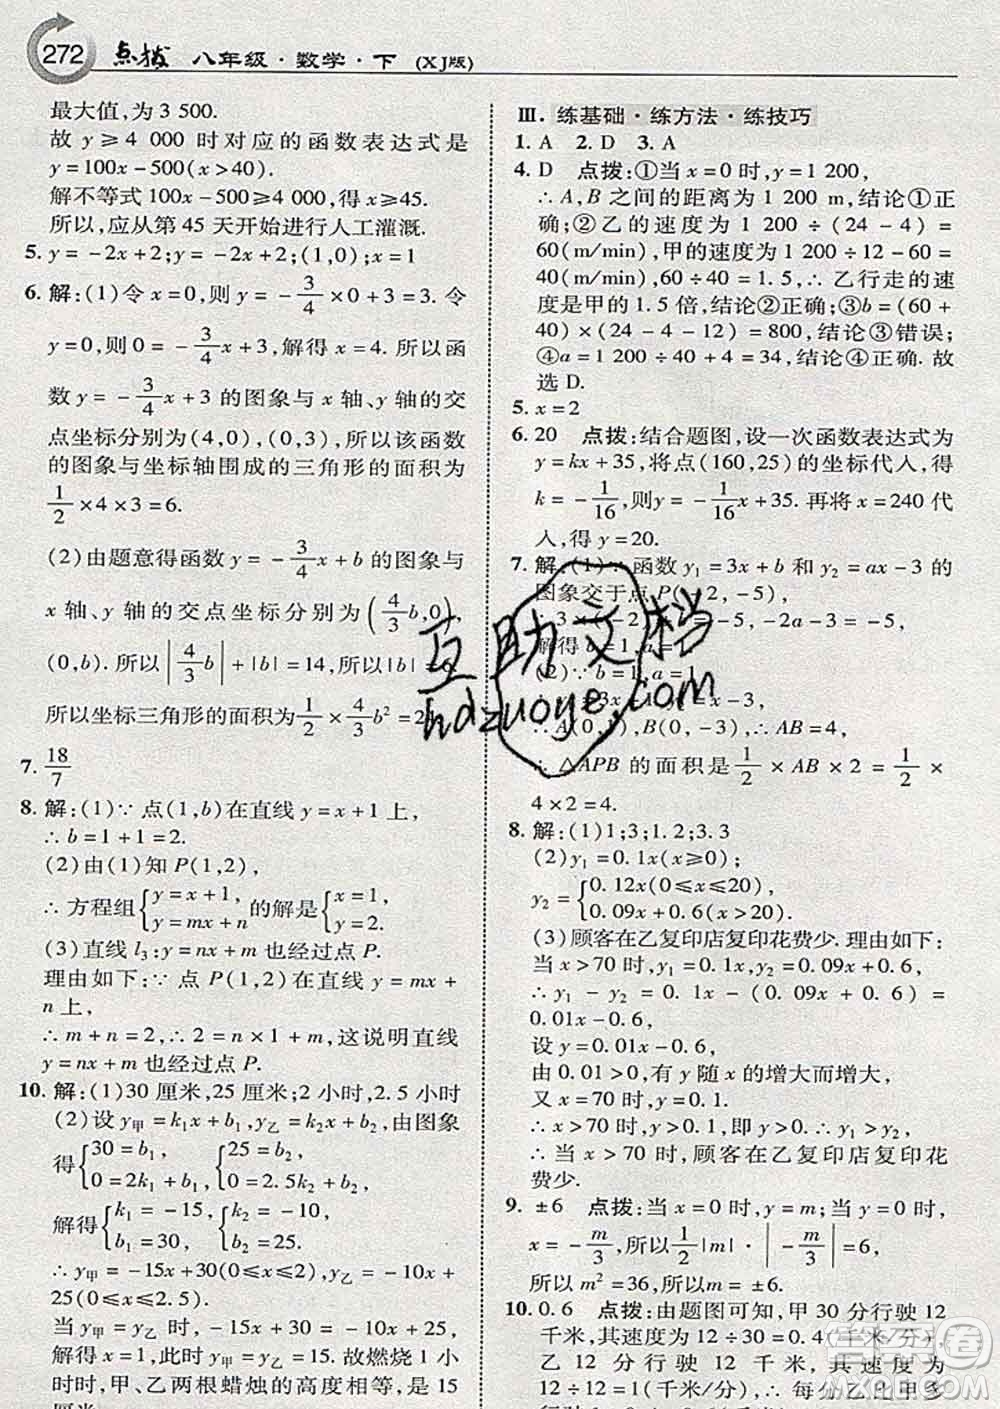 272 点拨 八年级·数学·下 (XJ版)
最大值,为 3 500.
故 y⩾4 000 时对应的函数表达式是
y=100x-500(x>40).
解不等式 100x-500⩾4 000,得 x⩾45.
所以,应从第 45 天开始进行人工灌溉.
5. y=-2x+2;y=-2x+2;(1,0);x=1
6. 解:(1)令 x=0,则 y=-3/4×0+3=3. 令
y=0,则 0=-3/4x+3,解得 x=4. 所以函
数 y=-3/4x+3 的图象与 x 轴、y 轴的交
点坐标分别为(4,0),(0,3),所以该函数
的图象与坐标轴围成的三角形的面积为
1/2×4×3=6.
(2)由题意得函数 y=-3/4x+b 的图象与
x 轴、y 轴的交点坐标分别为(4/3b,0),
(0,b). 所以|4/3b|+|b|=14,所以|b|=6.
所以坐标三角形的面积为1/2×4/3b²=2
7. 18/7
8. 解:(1)∵点(1,b)在直线 y=x+1 上,
∴b=1+1=2.
(2)由(1)知 P(1,2),
∴方程组{y=x+1, y=mx+n 的解是{x=1, y=2.
(3)直线 l₃:y=nx+m 也经过点 P.
理由如下:∵点 P(1,2)在直线 y=mx+
n 上,
∴m+n=2,∴2=n×1+m,这说明直线
y=nx+m 也经过点 P.
10. 解:(1)30 厘米,25 厘米;2 小时,2.5 小时
(2)设 y甲=k₁x+b₁,y乙=k₂x+b₂,由图象
得{30=b₁, 0=2k₁+b₁, {25=b₂, 0=2.5k₂+b₂,
解得{k₁=-15, b₁=30, {k₂=-10, b₂=25.
∴y甲=-15x+30(0⩽x⩽2),y乙=-10x+
25(0⩽x⩽2.5).
当 y甲=y乙时,-15x+30=-10x+25,
解得 x=1,此时 y甲=y乙=15. 故燃烧 1 小
时时,甲、乙两根蜡烛的高度相等,是 15
厘米.
Ⅲ. 练基础·练方法·练技巧
1. A 2. D 3. A
4. D 点拨:①当 x=0 时,y=1 200,
∴A,B 之间的距离为 1 200 m,结论①正
确;②乙的速度为 1 200÷(24-4)=
60(m/min),甲的速度为 1 200÷12-60=
40(m/min),60÷40=1.5,∴乙行走的速
度是甲的 1.5 倍,结论②正确;③b=(60+
40)×(24-4-12)=800,结论③错误;
④a=1 200÷40+4=34,结论④正确. 故
选 D.
5. x=2
6. 20 点拨:结合题图,设一次函数表达式为
y=kx+35,将点(160,25)的坐标代入,得
k=-1/16,则 y=-1/16x+35. 再将 x=240 代
入,得 y=20.
7. 解:(1)∵函数 y₁=3x+b 和 y₂=ax-3 的
图象交于点 P(-2,-5),
∴3×(-2)+b=-5,-2a-3=-5,
解得 b=1,a=1.
(2)∵b=1,a=1,
x-3,
∴A(0,1),B(0,-3),∴AB=4,
∴△APB 的面积是1/2×AB×2=1/2×
4×2=4.
8. 解:(1)1;3;1.2;3.3
(2)y₁=0.1x(x⩾0);
y₂={0.12x(0⩽x⩽20), 0.09x+0.6(x>20).
(3)顾客在乙复印店复印花费少. 理由如下:
当 x>70 时,y₁=0.1x,y₂=0.09x+0.6,
∴y₁-y₂=0.1x-(0.09x+0.6)=
0.01x-0.6,
设 y=0.01x-0.6,
由 0.01>0,得 y 随 x 的增大而增大,
又 x=70 时,y=0.1,
∴x>70 时,y>0.1,即 y>0,∴y₁>y₂,
∴当 x>70 时,顾客在乙复印店复印花
费少.
9. ±6 点拨:当 x=0 时,y=m;当 y=0 时,
x=-m/3,所以1/2|m|·|-m/3|=6,
所以 m²=36,所以 m=±6.
10. 0.6 点拨:由题图可知,甲 30 分行驶 12
千米,其速度为 12÷30=0.4(千米/分),
乙 12 分行驶 12 千米,其速度为
12÷12=1(千米/分),∴每分乙比甲多
互助文档
hdzuoye.com